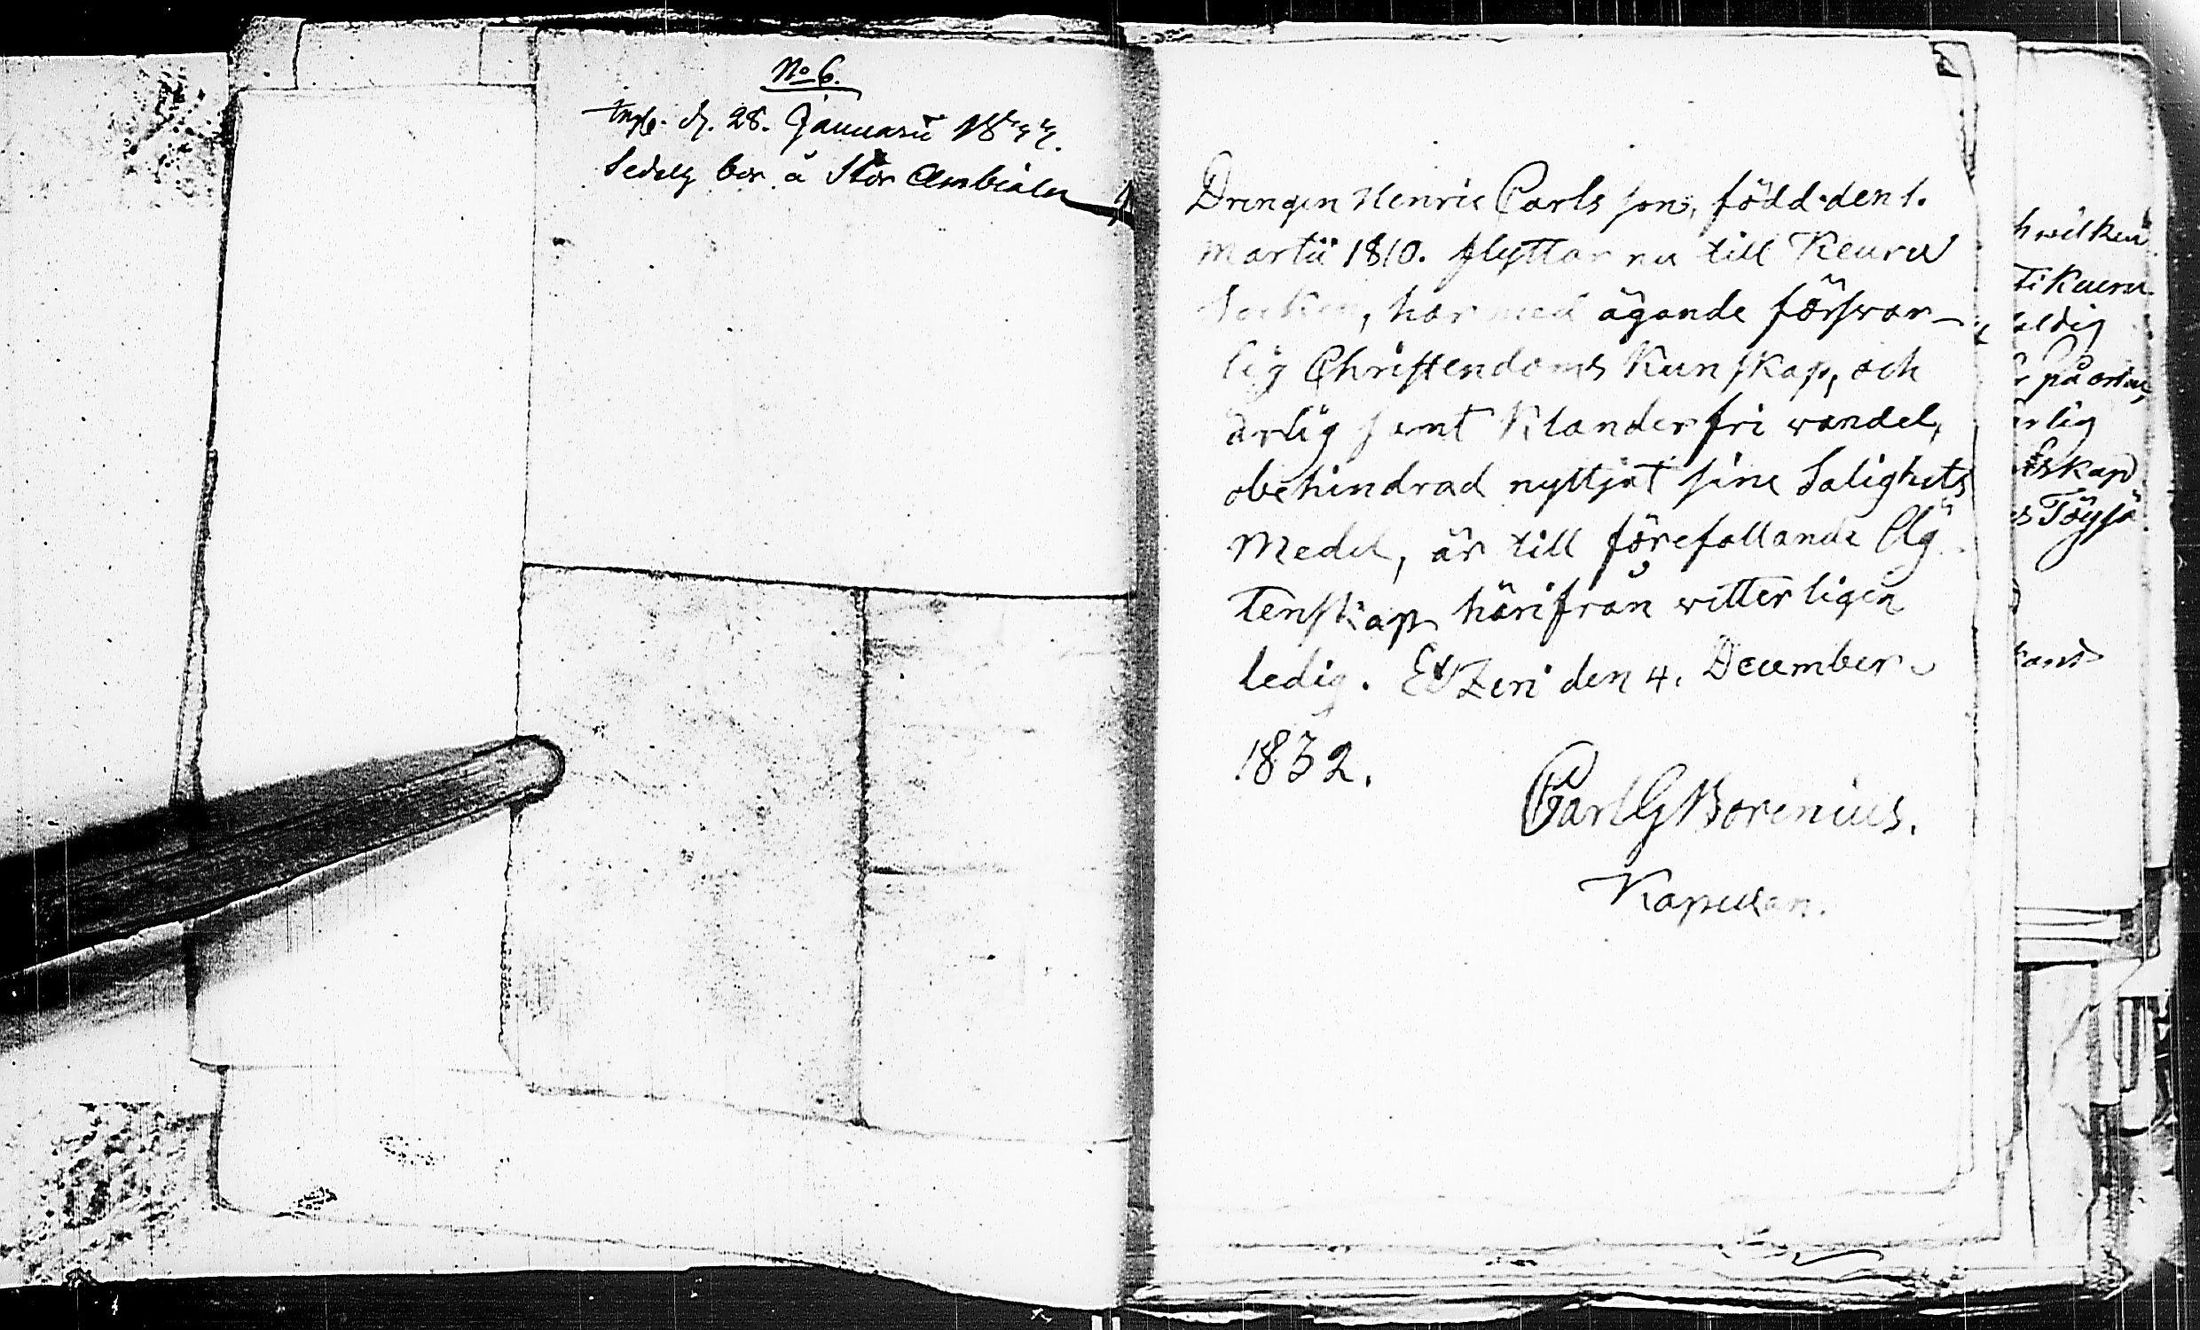 No 6.
d. 28. Januarii 1833.
bor å Stor Ambiala
Drengen Henric Carlsson, född den 1.
Martii 1810. flyttar nu till Keuru
Socken, har med ägande förswar-
lig Christendoms Kunskap, och
ärlig samt Klanderfri wandel,
obehindrad nyttjat sine Salighets
Medel, är till förefallande Äg-
tenskap härifrån witterligen
ledig. Etzeri den 4. December
1832.
Carl G Borenius.
Kapellan.
hwilken
på orten
ärlig
skap
Töysä